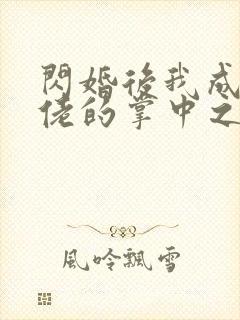 閃婚後我成
佬的掌中之
風吟飄雪